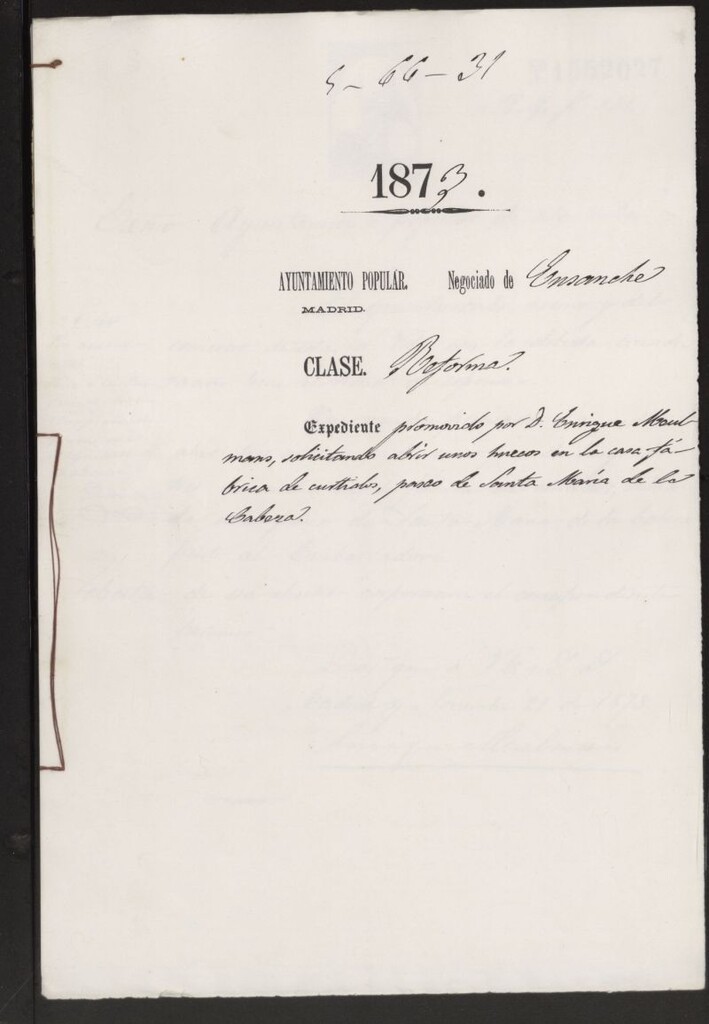 5-66-31
1873.
AYUNTAMIENTO POPULAR. Negociado de Ensanche
MADRID.
CLASE. Reforma.
Expediente promovido por D. Enrique Maul-
mans, solicitando abrir unos huecos en la casa, fá-
brica de curtidos, paseo de Santa María de la
Cabeza.